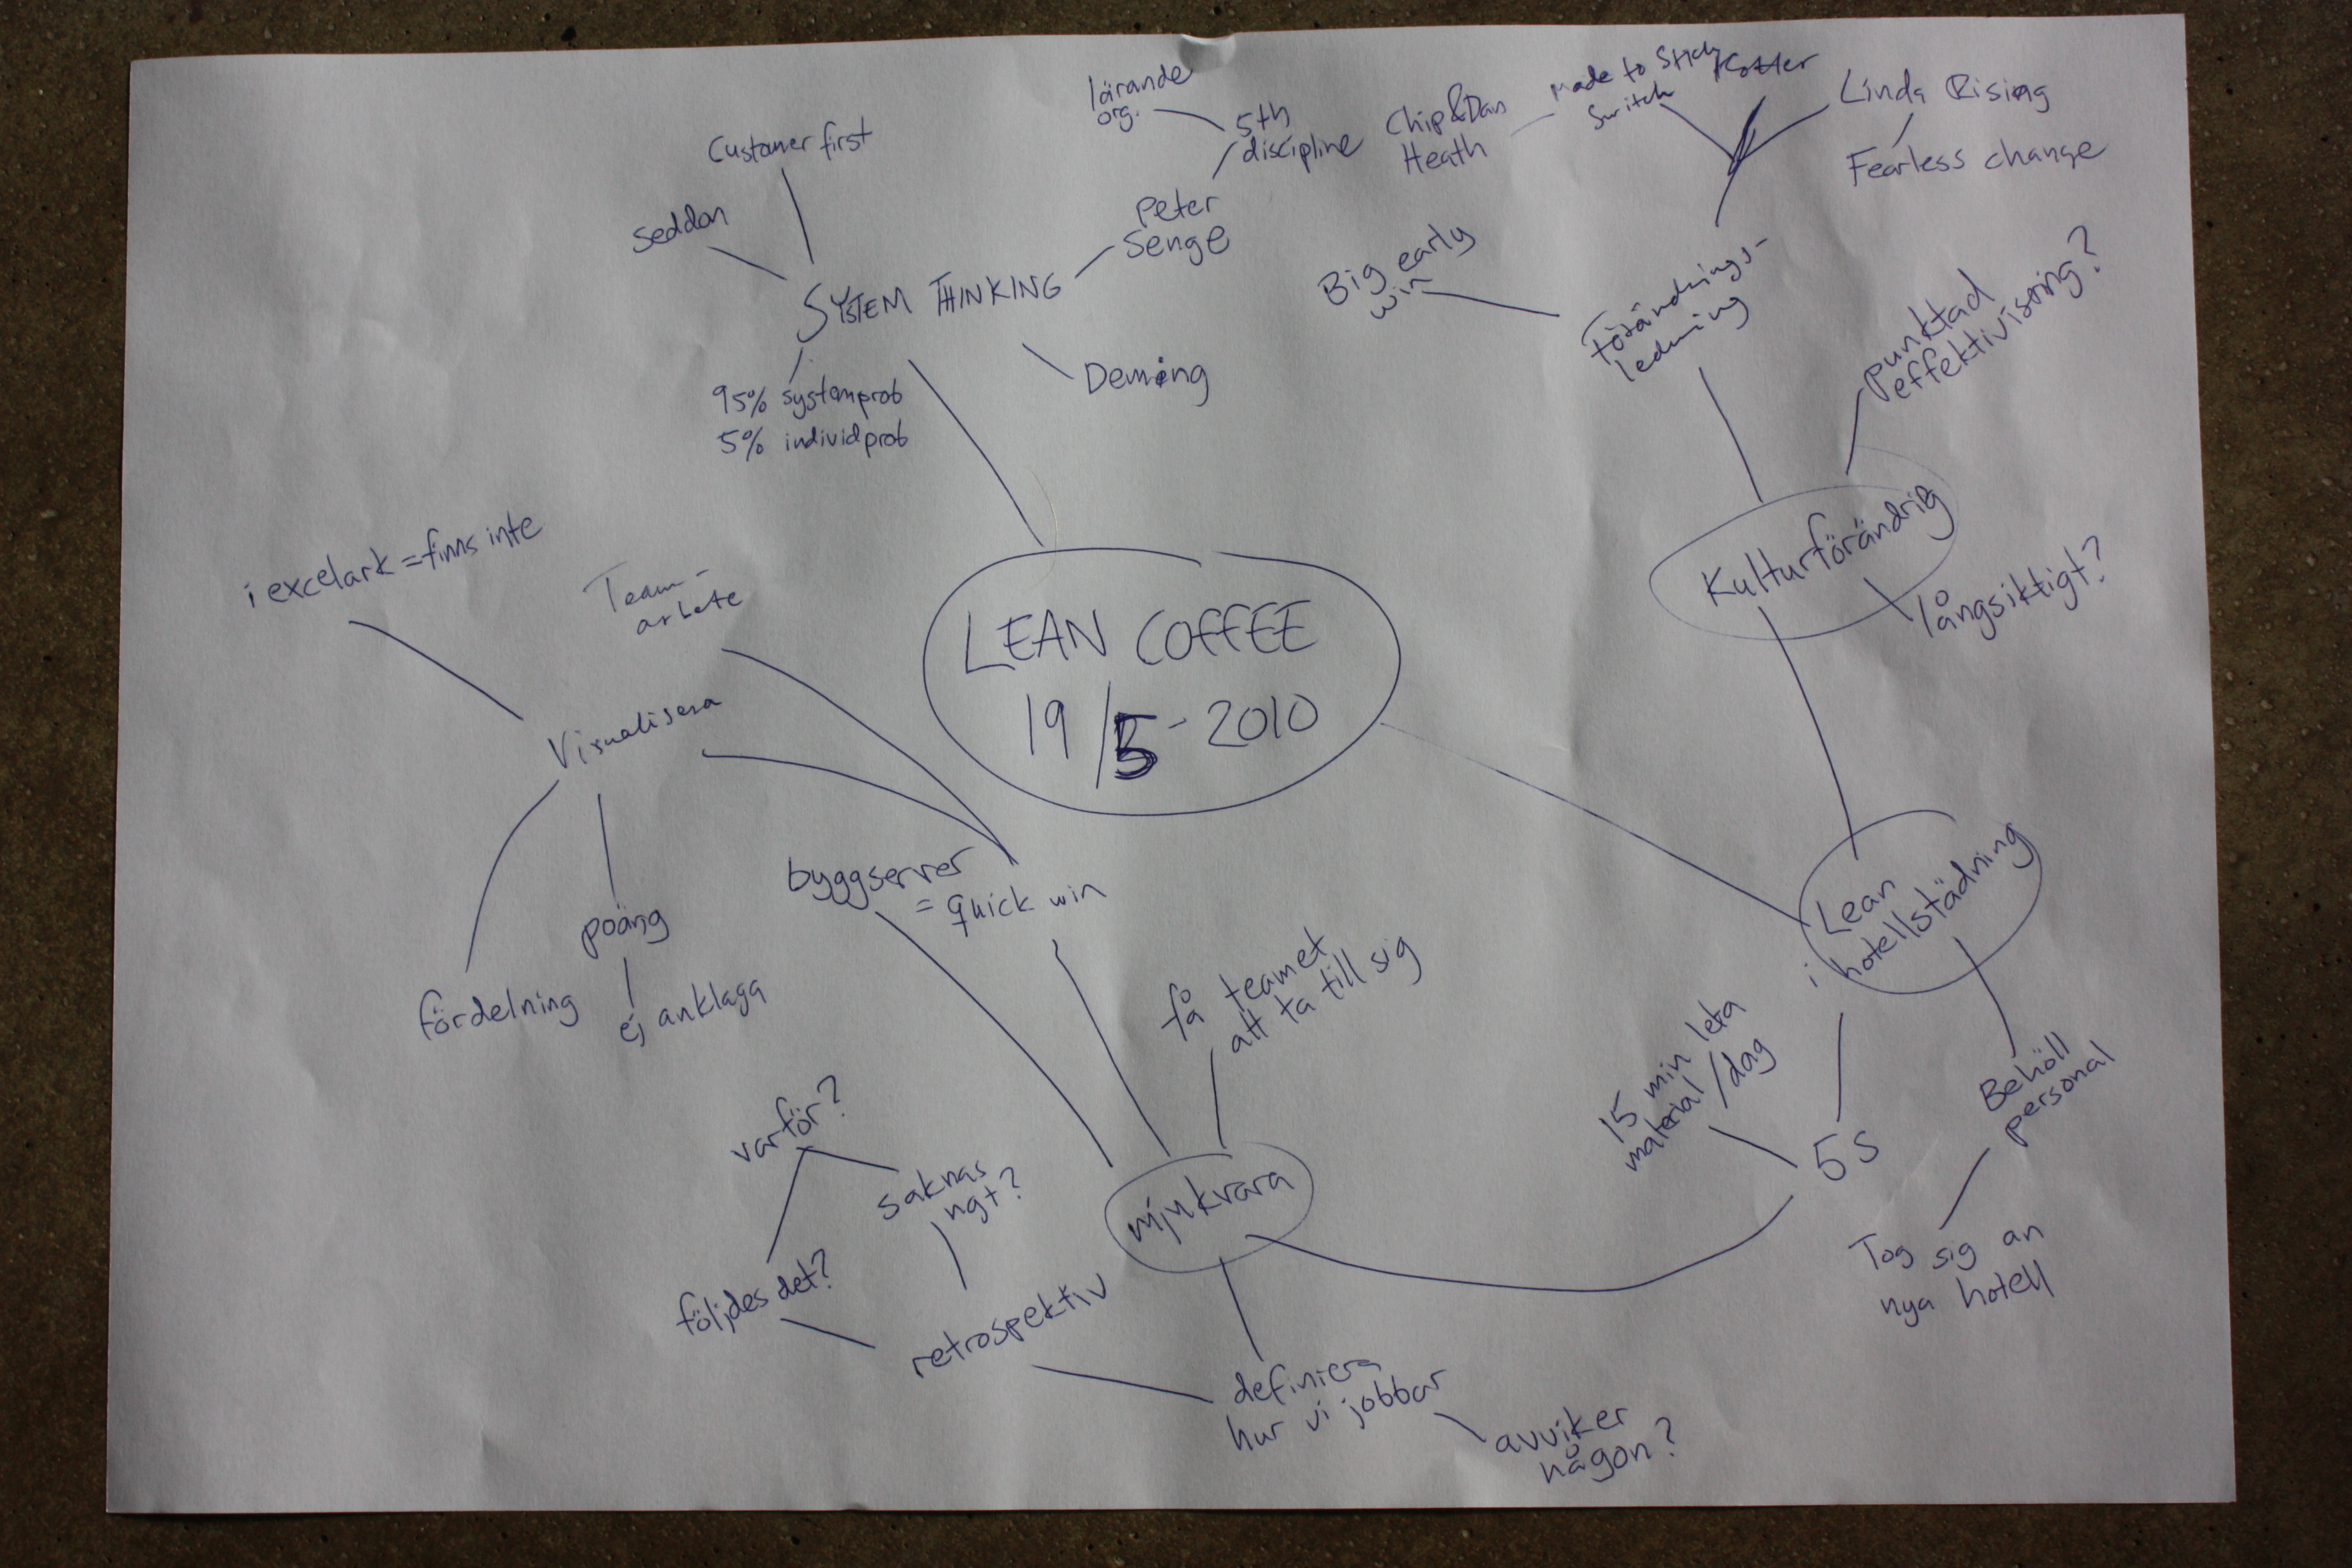 lärande
org.
5th
discipline
Chip & Dan
Heath
Made to Stick
Switch
Kotter
Linda Rising
Fearless change
Customer first
Seddon
Peter
Senge
SYSTEM THINKING
Deming
95% systemprob
5% individprob
Big early
win
Förändrings-
ledning
punktad
effektivisering?
Kulturförändrig
långsiktigt?
i excelark = finns inte
Team-
arbete
LEAN COFFEE
19/5-2010
Visualisera
poäng
ej anklaga
fördelning
byggserver
= quick win
få teamet
att ta till sig
Lean
i hotellstädning
15 min leta
material/dag
5S
Behöll
personal
Tog sig an
nya hotell
varför?
saknas
ngt?
mjukvara
följdes det?
retrospektiv
definiera
hur vi jobbar
avviker
någon?